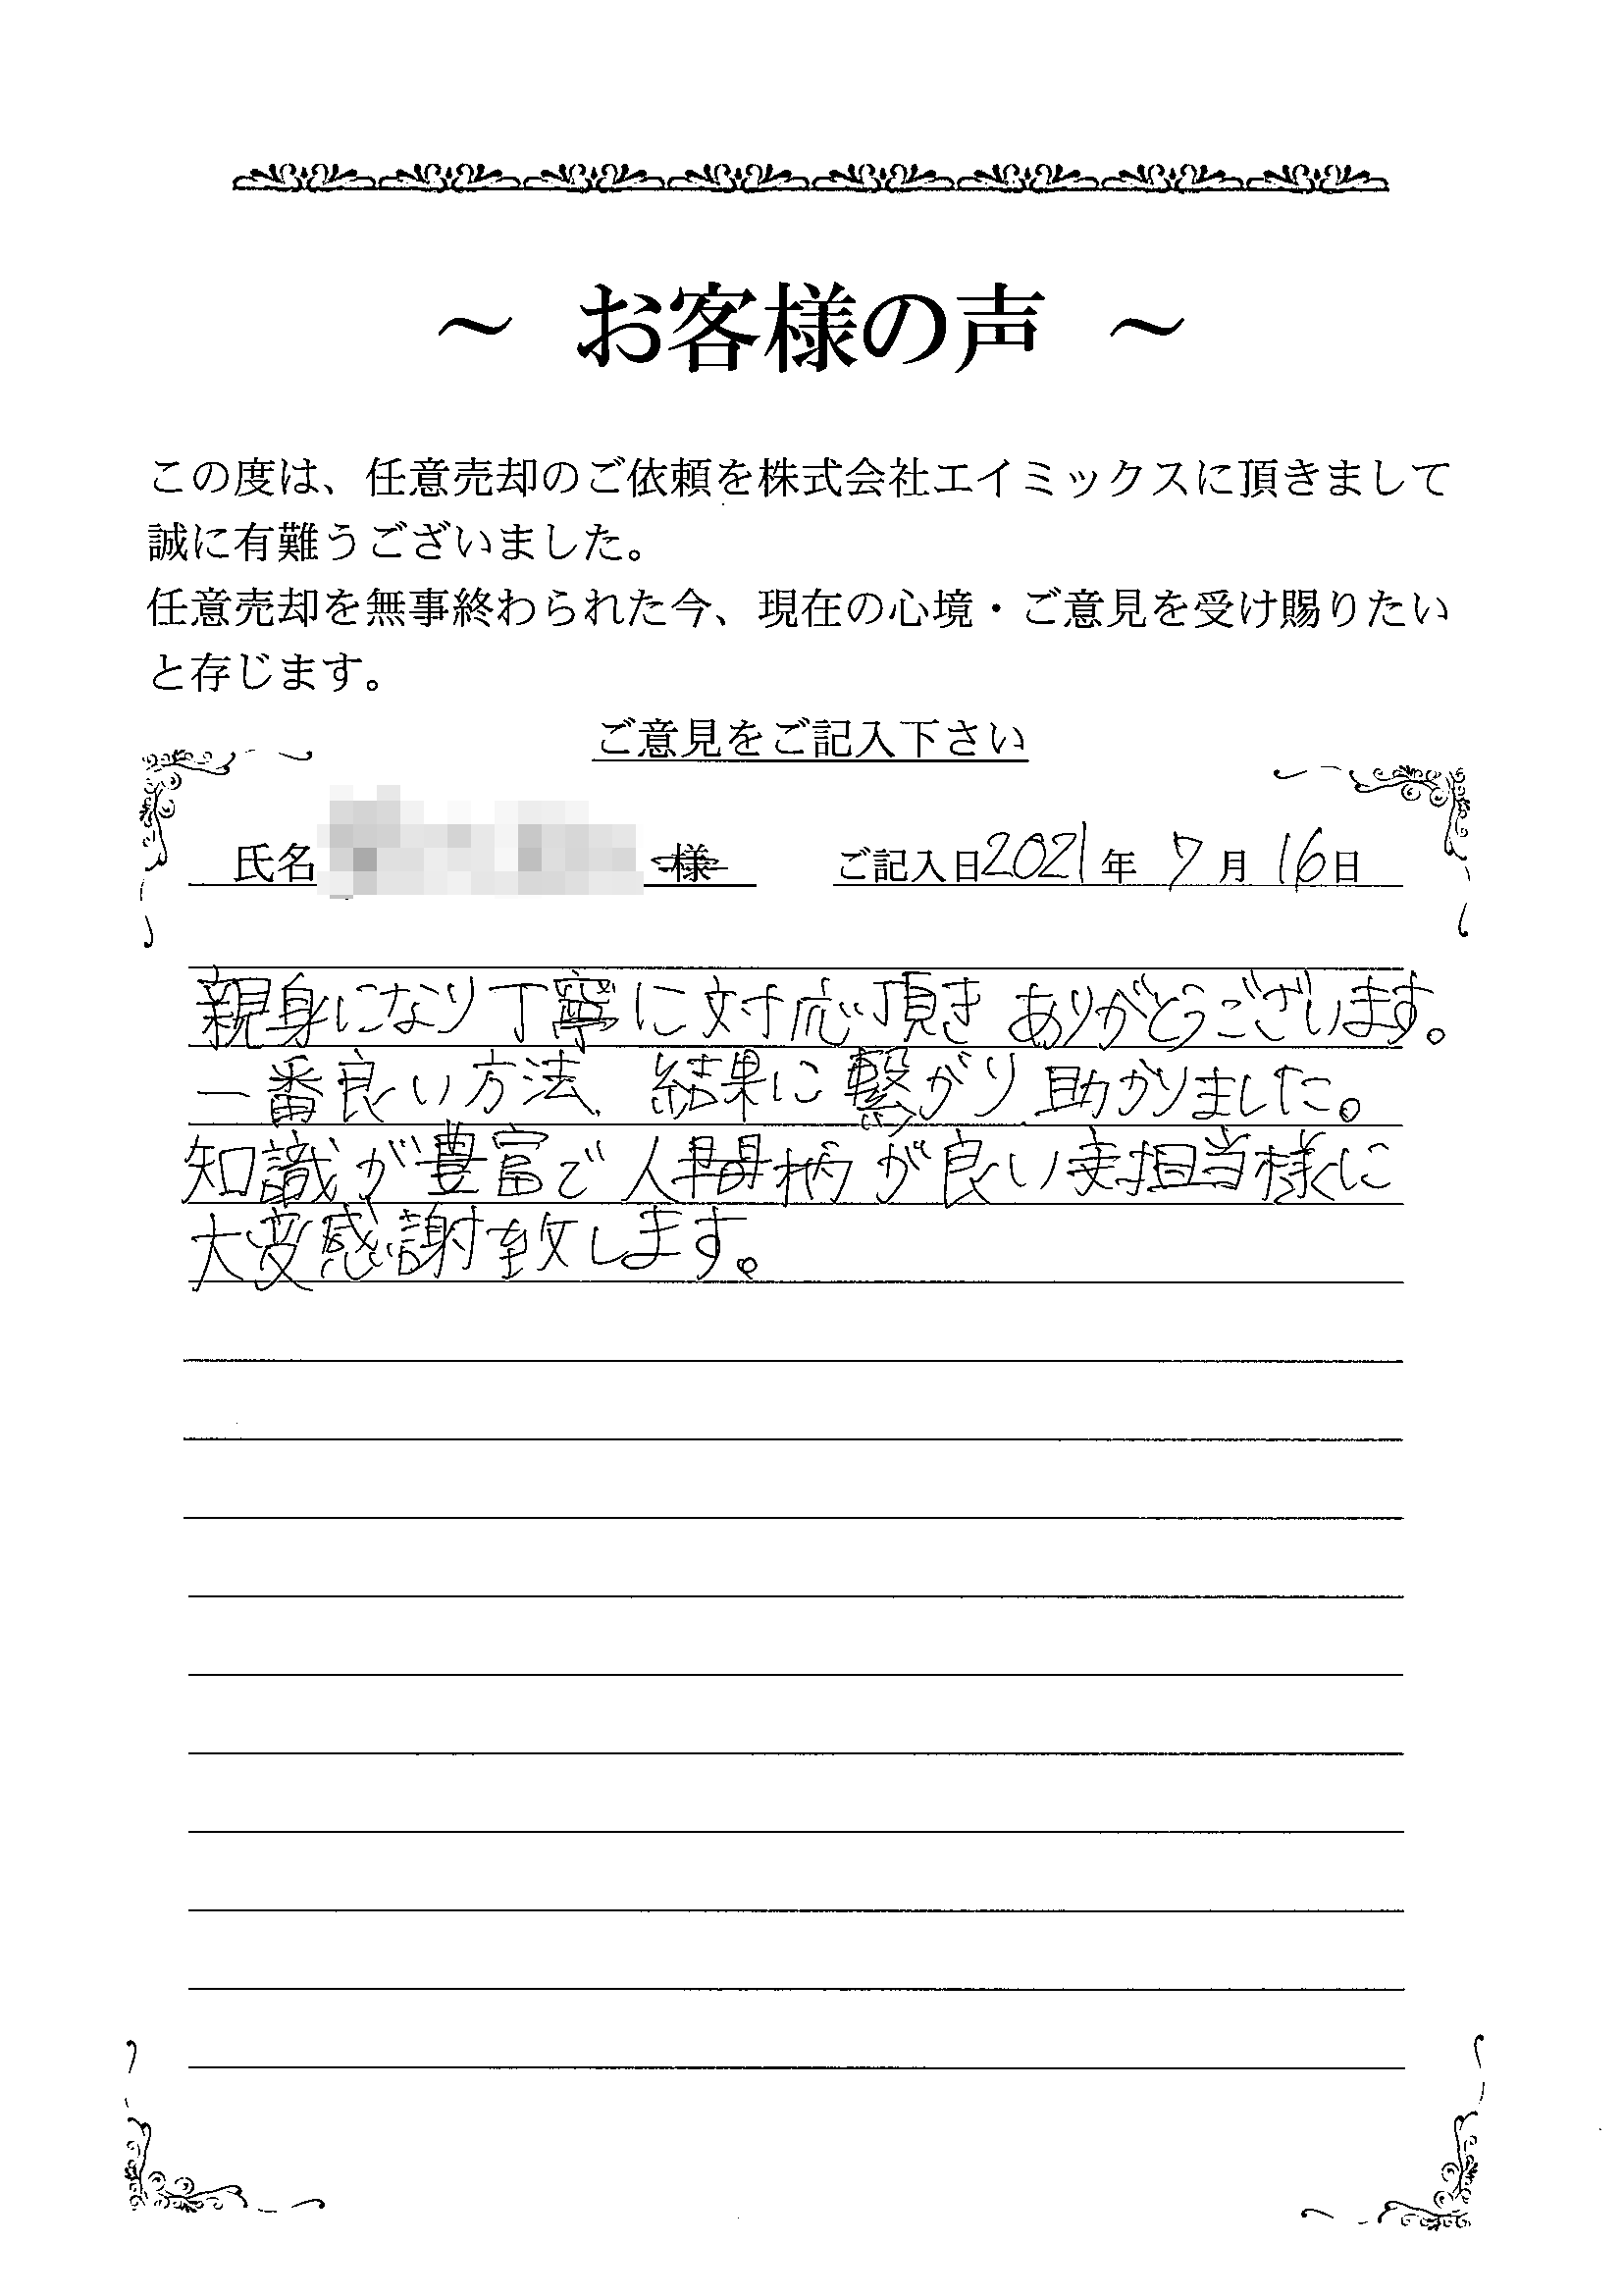 ～ お客様の声 ～
この度は、任意売却のご依頼を株式会社エイミックスに頂きまして
誠に有難うございました。
任意売却を無事終わられた今、現在の心境・ご意見を受け賜りたい
と存じます。
ご意見をご記入下さい
氏名 様 ご記入日2021年 7月 16日
親身になり丁寧に対応頂き ありがとうございます。
一番良い方法、結果に繋がり、助かりました。
知識が豊富で人間柄が良い 担当様に
大変感謝致します。